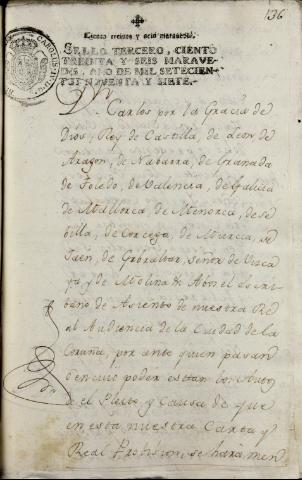 136
Ciento treinta y ocho maravedis.
SELLO TERCERO, CIENTO
TREINTA Y SEIS MARAVE-
DIS, AÑO DE MIL SETECIEN-
TOS NOVENTA Y SIETE.
Dn. Carlos por la Gracia de
Dios, Rey de Castilla, de Leon, de
Aragon, de Nabarra, de Granada
de Toledo, de Valencia, de Galicia
de Mallorca, de Menorca, de Se
billa, de Corcega, de Murcia, de
Jaen, de Gibraltar, señor de Vizca
ya, y de Molina &c. A bos el escri
bano de Asiento de nuestra Re
al Audiencia de la Ciudad de la
Coruña, por ante quien pasan
o en cuio poder esttan los Autos
de el Pleito, y Causa de que
en esta nuestra Carta y
Real Probision, se hará men